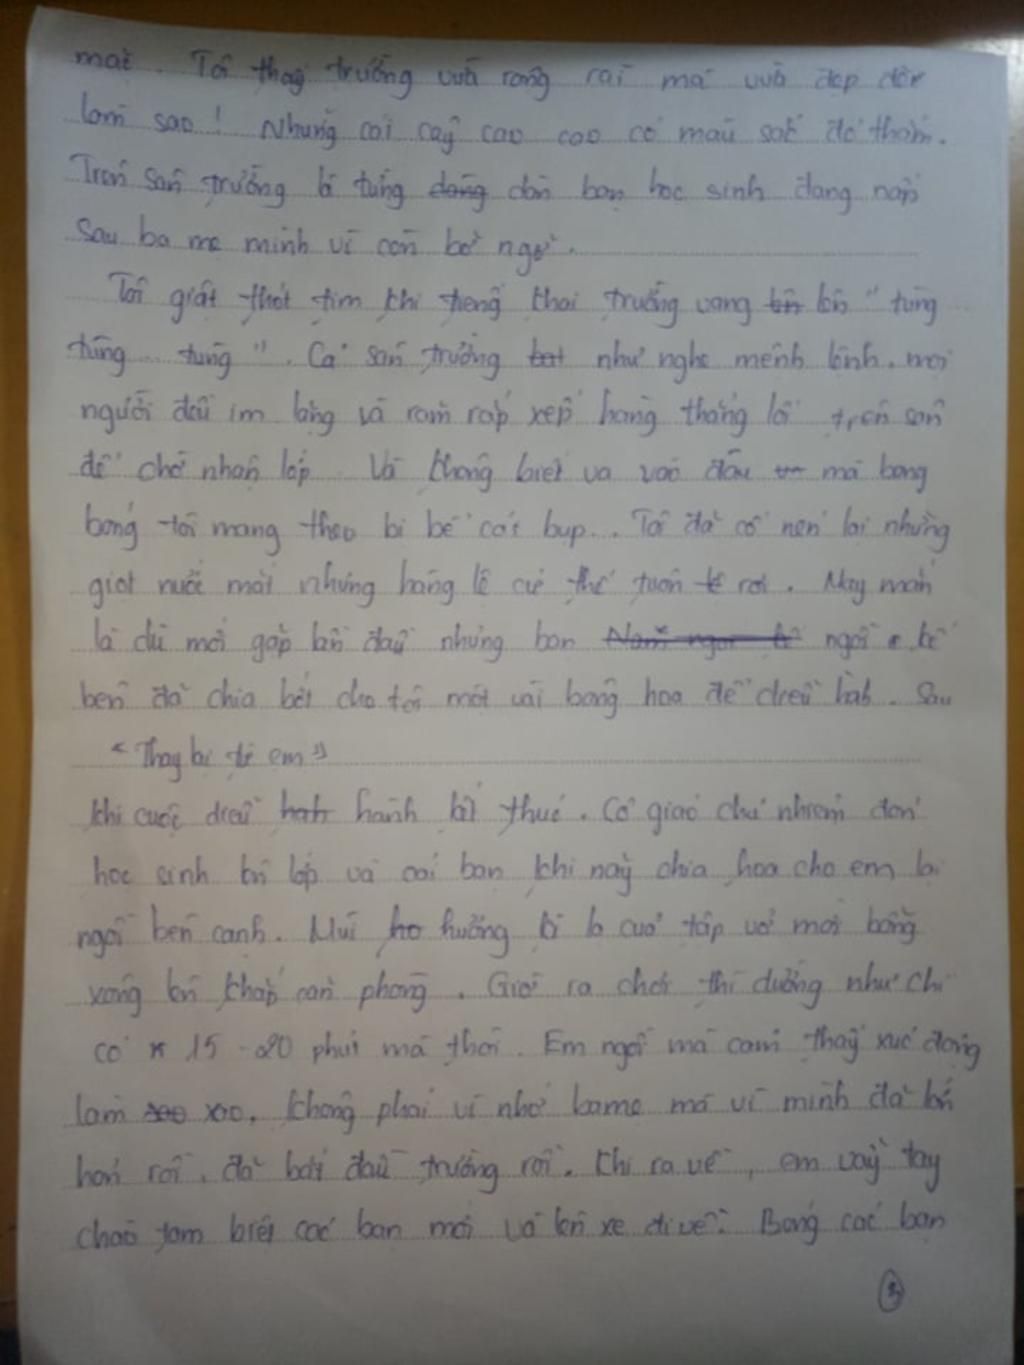 mắt. Tôi thấy trường vừa rộng rãi mà vừa đẹp đẽ
làm sao! Những cái cây cao cao có màu sắc đỏ thắm.
Trên sân trường là từng dòng dàn bạn học sinh đang nấp
sau ba mẹ mình vì còn bỡ ngỡ.
Tôi giật thót tim khi tiếng khai trường vang lên lên "tùng
tùng... tùng". Cả sân trường như nghe mệnh lệnh. mọi
người đều im lặng và răm rắp xếp hàng thẳng lối trên sân
để chờ nhận lớp. Và không biết va vào đâu mà bong
bóng tôi mang theo bị bể cái bụp... Tôi đã cố nén lại những
giọt nước mắt nhưng hàng lệ cứ thế tuôn rơi. May mắn
là dù mới gặp lần đầu nhưng bạn ngồi kế
bên đã chia bớt cho tôi một vài bông hoa để diễu hành. Sau
"Thay bị từ em"
khi cuộc diễu hành kết thúc. Cô giáo chủ nhiệm đón
học sinh lên lớp và cái bạn khi nãy chia hoa cho em lại
ngồi bên cạnh. Mùi hương là lạ của tập vở mới bỗng
xông lên khắp căn phòng. Giờ ra chơi thì dường như chỉ
có 15-20 phút mà thôi. Em ngồi mà cảm thấy xúc động
làm sao xao. không phải vì nhớ ba mẹ mà vì mình đã lớn
hơn rồi. đã bắt đầu trường rồi. Khi ra về, em vẫy tay
chào tạm biệt các bạn mới và lên xe đi về. Bóng các bạn
3